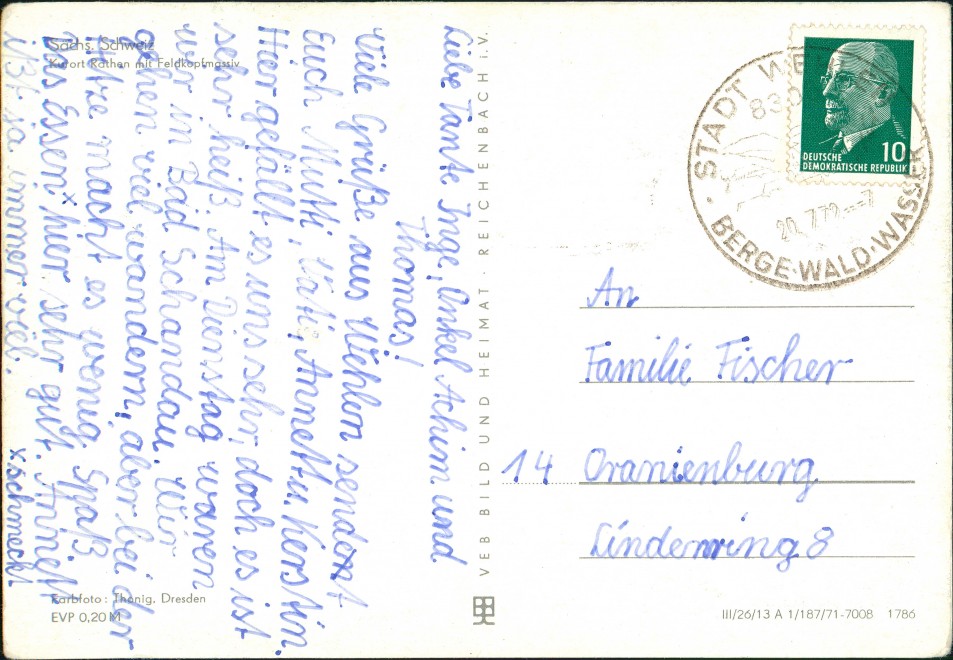 Sächs. Schweiz
Kurort Rathen mit Feldkopfmassiv
Liebe Tante Inge, Onkel Achim und
Thomas!
Viele Grüße aus Wehlen sendet
Euch Mutti, Vati, Annett u. Kerstin.
Hier gefällt es uns sehr, doch es ist
sehr heiß. Am Dienstag waren
wir in Bad Schandau. Wir
gehen viel wandern, aber bei der
Hitze macht es wenig Spaß.
Das Essen x hier sehr gut. Annett
ißt ja immer viel.
x schmeckt
Farbfoto: Thonig, Dresden
EVP 0,20 M
VEB BILD UND HEIMAT · REICHENBACH i. V.
STADT WE
83
BERGE·WALD·WASSER
20.7.72
DEUTSCHE
DEMOKRATISCHE REPUBLIK
10
An
Familie Fischer
14 Oranienburg
Lindenring 8
III/26/13 A 1/187/71-7008 1786